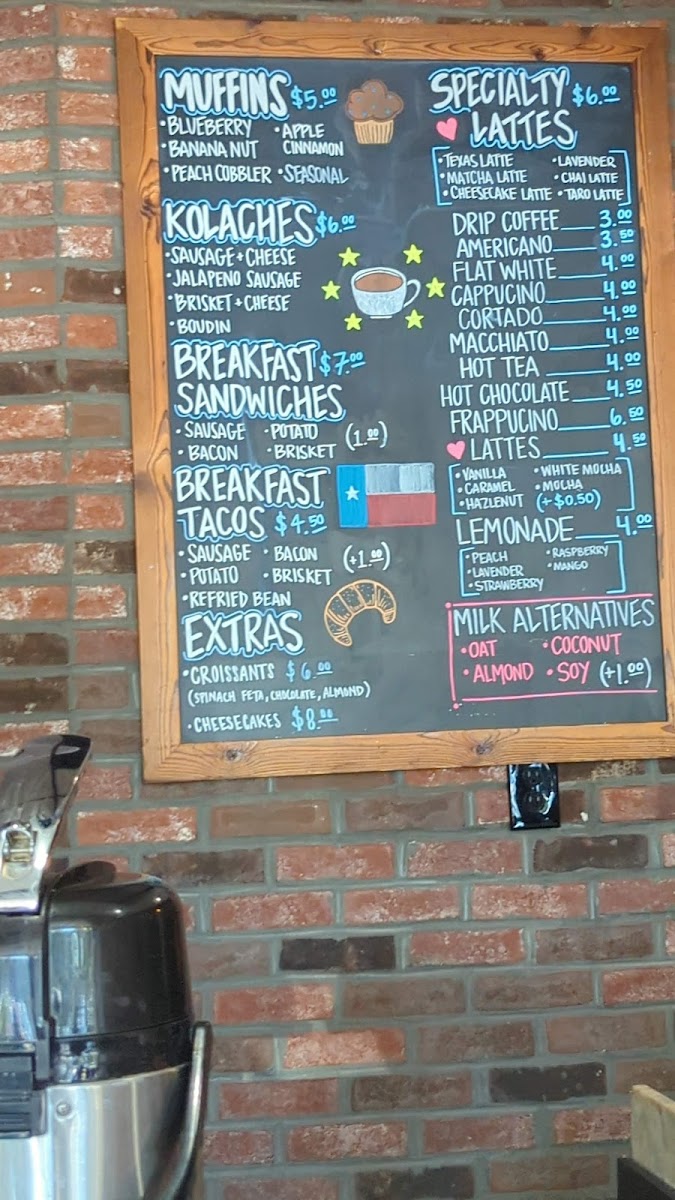 MUFFINS $5.00
• BLUEBERRY • APPLE CINNAMON
• BANANA NUT
• PEACH COBBLER • SEASONAL
KOLACHES $6.00
• SAUSAGE + CHEESE
• JALAPENO SAUSAGE
• BRISKET + CHEESE
• BOUDIN
BREAKFAST SANDWICHES $7.00
• SAUSAGE • POTATO
• BACON • BRISKET (1.00)
BREAKFAST
TACOS $4.50
• SAUSAGE • BACON
• POTATO • BRISKET (+1.00)
• REFRIED BEAN
EXTRAS
• CROISSANTS $6.00
(SPINACH FETA, CHOCOLATE, ALMOND)
• CHEESECAKES $8.00
SPECIALTY LATTES $6.00
• TEXAS LATTE • LAVENDER
• MATCHA LATTE • CHAI LATTE
• CHEESECAKE LATTE • TARO LATTE
DRIP COFFEE 3.00
AMERICANO 3.50
FLAT WHITE 4.00
CAPPUCINO 4.00
CORTADO 4.00
MACCHIATO 4.00
HOT TEA 4.00
HOT CHOCOLATE 4.50
FRAPPUCINO 6.50
LATTES 4.50
• VANILLA • WHITE MOCHA
• CARAMEL • MOCHA
• HAZLENUT (+$0.50)
LEMONADE 4.00
• PEACH • RASPBERRY
• LAVENDER • MANGO
• STRAWBERRY
MILK ALTERNATIVES
• OAT • COCONUT
• ALMOND • SOY (+1.00)